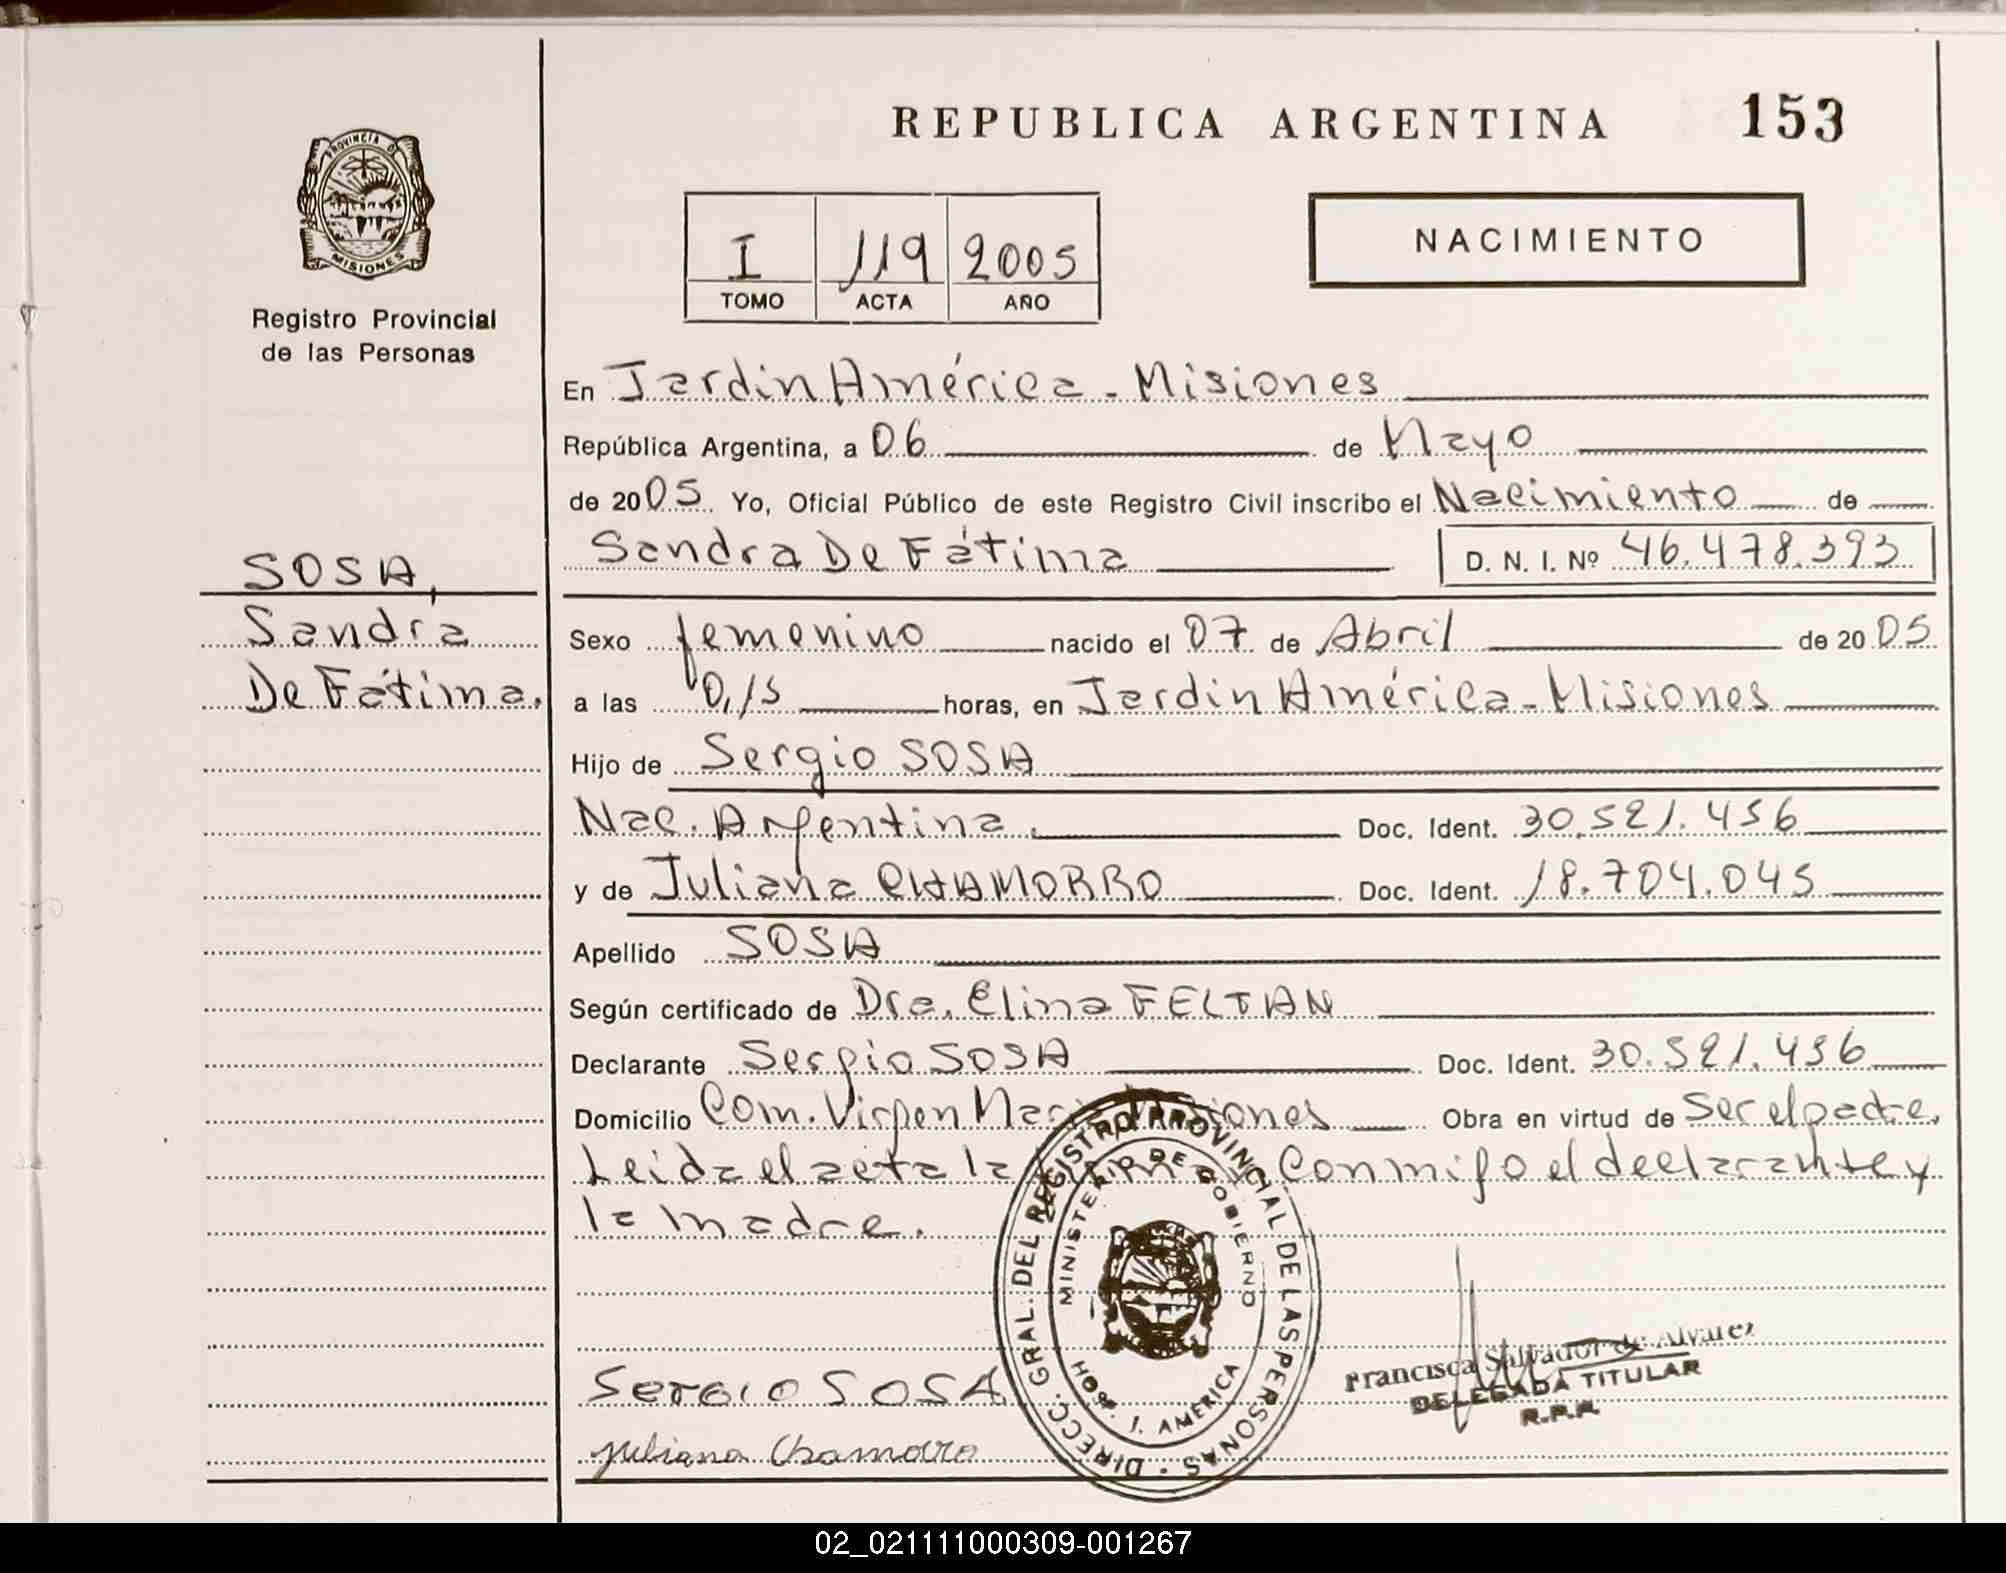 REPUBLICA ARGENTINA 153
PROVINCIA D
MISIONES
Registro Provincial
de las Personas
I 119 2005
TOMO ACTA AÑO
NACIMIENTO
En Jardin América - Misiones
República Argentina, a 06 de Mayo
de 2005 Yo, Oficial Público de este Registro Civil inscribo el Nacimiento de
Sandra De Fátima D. N. I. Nº 46.478.393
SOSA,
Sandra
De Fátima.
Sexo femenino nacido el 07 de Abril de 2005
a las 0,15 horas, en Jardin América - Misiones
Hijo de Sergio SOSA
Nac. Argentina. Doc. Ident. 30.521.456
y de Juliana CHAMORRO Doc. Ident. 18.704.045
Apellido SOSA
Según certificado de Dra. Elina FELTAN
Declarante Sergio SOSA Doc. Ident. 30.521.456
Domicilio Com. Virgen Maria Misiones Obra en virtud de ser el padre.
Leida el acta la Conmigo el declarante y
la madre.
DIRECC. GRAL. DEL REGISTRO PROVINCIAL DE LAS PERSONAS
MINISTERIO DE GOBIERNO
J. AMERICA
Sergio SOSA
Juliana Chamorro
Francisca Salvador de Alvarez
DELEGADA TITULAR
R.P.P.
02_021111000309-001267